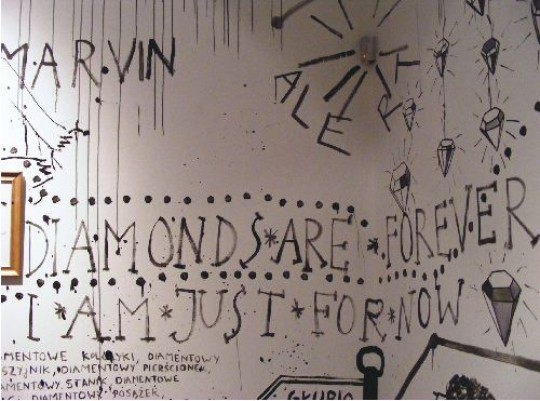 MARVIN
ALERT
DIAMONDS*ARE*FOREVER
I*AM*JUST*FOR*NOW
MENTOWE KOLCZYKI, DIAMENTOWY
SZYJNIK, DIAMENTOWY PIERŚCIONEK,
AMENTOWY STANIK, DIAMENTOWE
DIAMENTOWY POSĄŻEK,